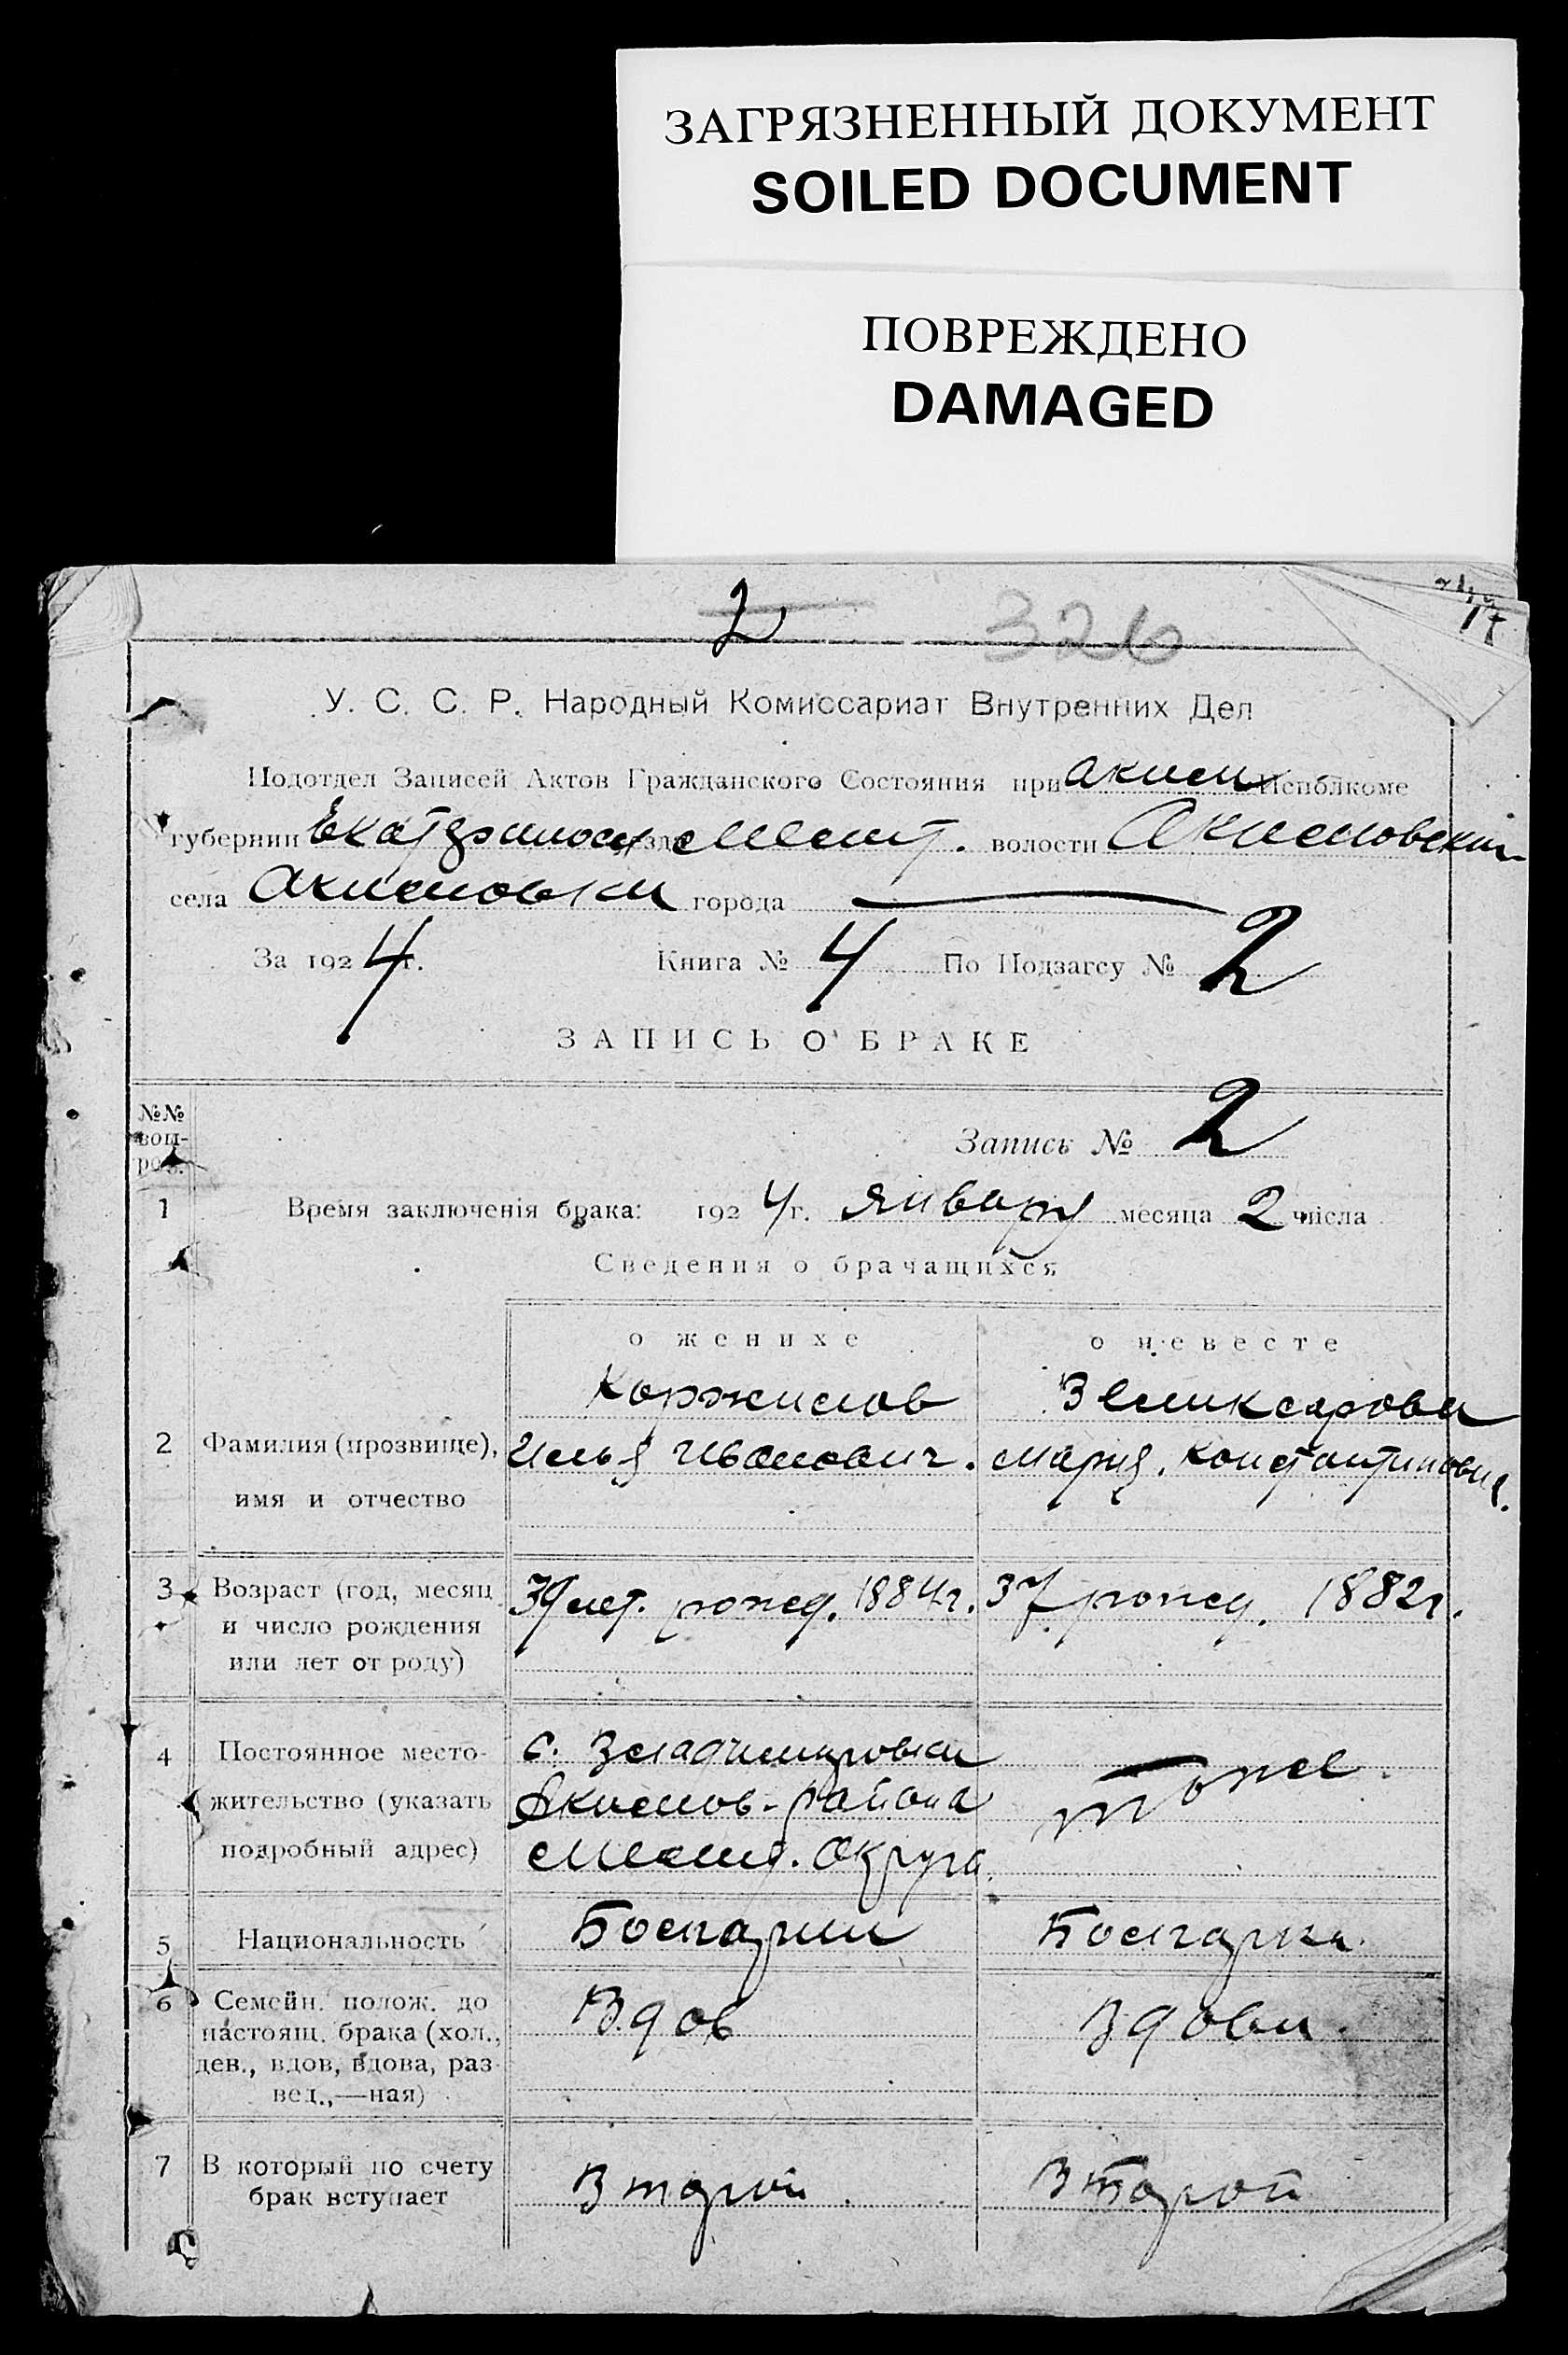 ЗАГРЯЗНЕННЫЙ ДОКУМЕНТ
SOILED DOCUMENT
ПОВРЕЖДЕНО
DAMAGED
2 326
17
У. С. С. Р. Народный Комиссариат Внутренних Дел
Подотдел Записей Актов Гражданского Состояния при Аким Исполкоме
губернии Екатериносл уезда Мелит. волости Акимовской
села Акимовки города —
За 1924 г. Книга № 4 По Подзагсу № 2
ЗАПИСЬ О БРАКЕ
№№ воп-рос.
Запись № 2
1 Время заключенiя брака: 1924 г. Января месяца 2 числа
Сведения о брачащихся
о женихе о невесте
Коржилов
2 Фамилия (прозвище), Илья Иванович. Мария Константиновна.
имя и отчество
3 Возраст (год, месяц 39 лет. рожд. 1884 г. 37 рожд. 1882 г.
и число рождения
или лет от роду)
4 Постоянное место- с. Владимировки
жительство (указать Акимов. района тоже.
подробный адрес) Мелит. округа.
5 Национальность Болгарин Болгарка.
6 Семейн. полож. до Вдов Вдова.
настоящ. брака (хол.,
дев., вдов, вдова, раз-
вед.,—ная)
7 В который по счету Второй. Второй
брак вступает